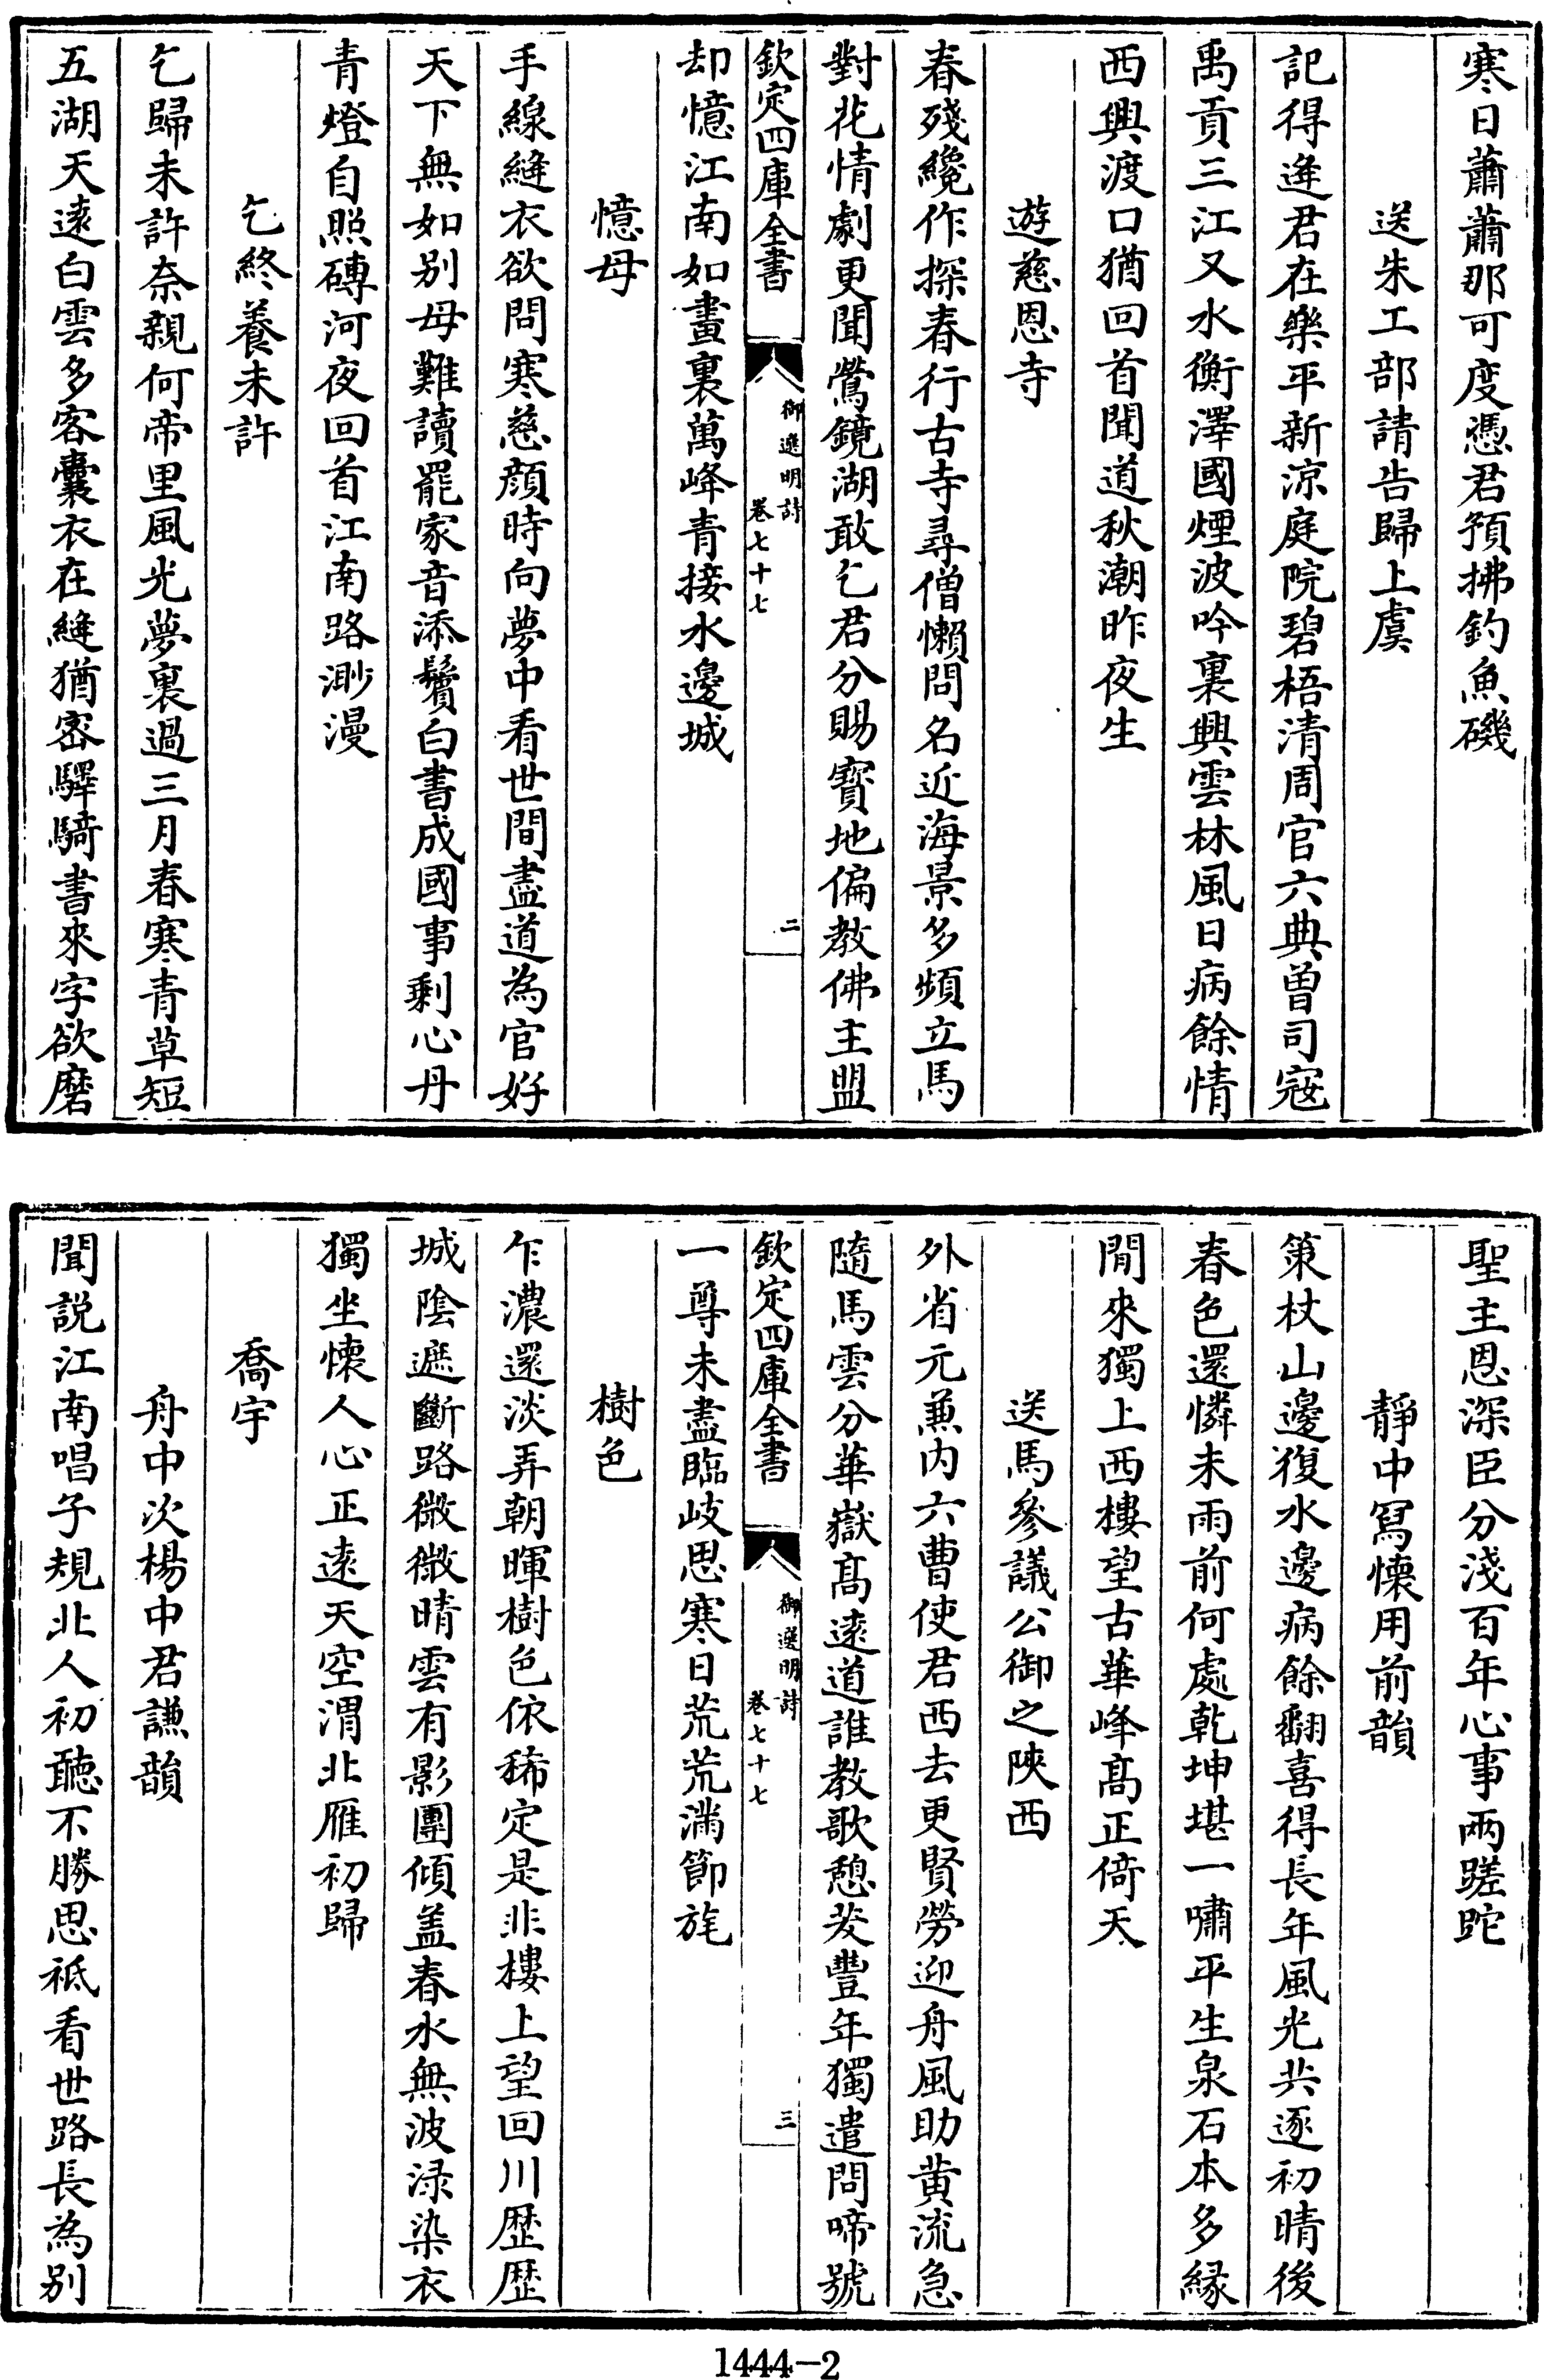 寒日蕭蕭那可度憑君預拂釣魚磯
送朱工部請告歸上虞
記得逢君在樂平新涼庭院碧梧清周官六典曽司冦
禹貢三江又水衡澤國煙波吟裏興雲林風日病餘情
西興渡口猶回首聞道秋潮昨夜生
遊慈恩寺
春殘纔作探春行古寺尋僧懶問名近海景多頻立馬
對花情劇更聞鶯鏡湖敢乞君分賜寳地偏教佛主盟
欽定四庫全書
御選明詩
卷七十七
二
却憶江南如畫裏萬峰青接水邊城
憶母
手線縫衣欲問寒慈顔時向夢中看世間盡道為官好
天下無如别母難讀罷家音添鬢白書成國事剩心丹
青燈自照磚河夜回首江南路渺漫
乞終養未許
乞歸未許奈親何帝里風光夢裏過三月春寒青草短
五湖天逺白雲多客囊衣在縫猶密驛騎書來字欲磨
聖主恩深臣分淺百年心事兩蹉跎
靜中冩懷用前韻
策杖山邊復水邊病餘翻喜得長年風光共逐初晴後
春色還憐未雨前何處乾坤堪一嘯平生泉石本多縁
閒來獨上西樓望古華峰髙正倚天
送馬參議公御之陜西
外省元兼内六曹使君西去更賢勞迎舟風助黄流急
隨馬雲分華嶽髙逺道誰教歌憩茇豐年獨遣問啼號
欽定四庫全書
御選明詩
卷七十七
三
一尊未盡臨岐思寒日荒荒滿節旄
樹色
乍濃還淡弄朝暉樹色依稀定是非樓上望回川歴歴
城隂遮斷路微微晴雲有影團傾盖春水無波渌染衣
獨坐懷人心正逺天空渭北雁初歸
喬宇
舟中次楊中君謙韻
聞説江南唱子規北人初聽不勝思祗看世路長為别
1444-2